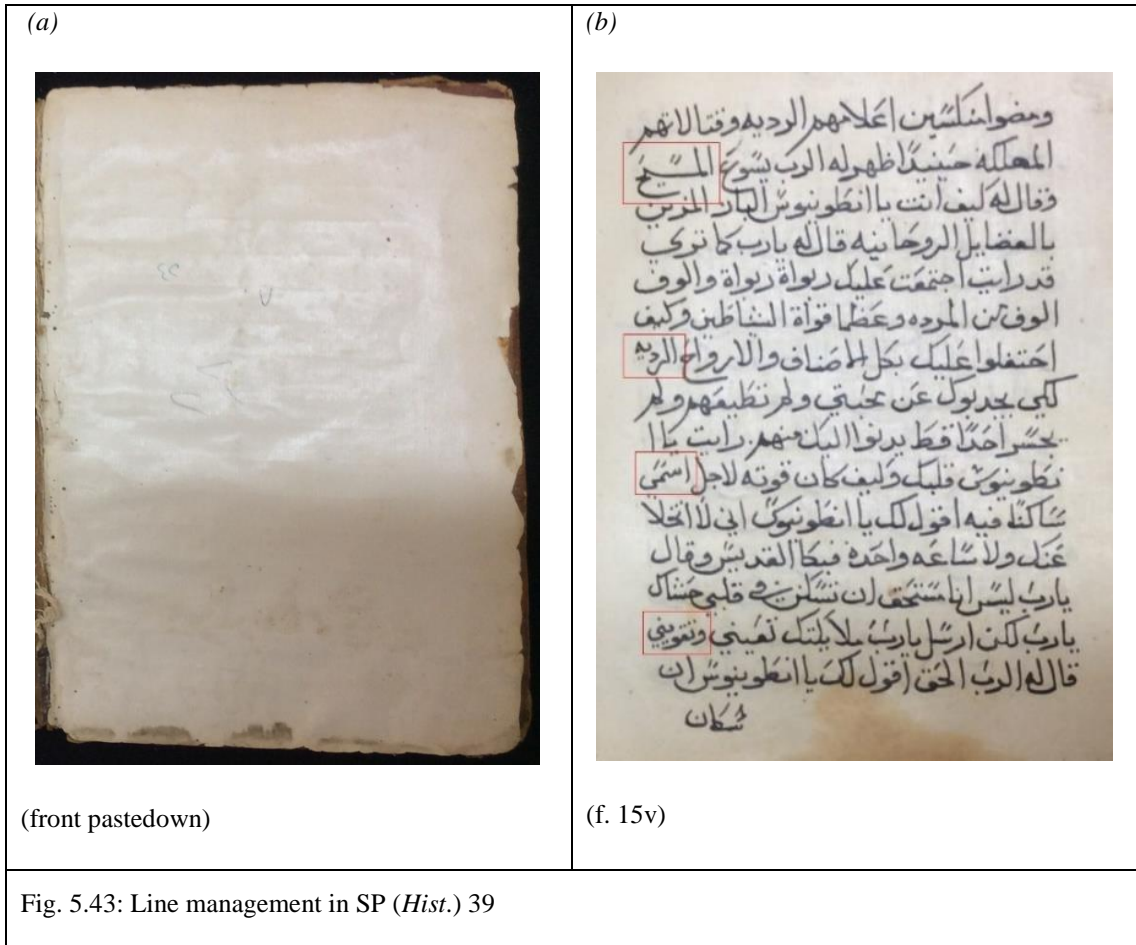 (a)
(front pastedown)
(b)
ومضوا منكسين اعلامهم الرديه وقتالاتهم
المهلكه حينيدا ظهر له الرب يسوع المسيح
وقال له كيف انت يا انطونيوس البار المزين
بالفضايل الروحانيه قال له يارب كما تري
قد رايت اجتمعت عليك ربواة ربواة والوف
الوف من المرده وعظما قواة الشياطين وكيف
احتفلوا عليك بكل الاصناف والارواح الرديه
لكي يجدبوك عن محبتي ولم تطيعهم ولم
يجسر احدا قط يدنوا اليك منهم رايت يا ا
نطونيوس قلبك وكيف كان قوته لاجل اسمي
ساكنا فيه اقول لك يا انطونيوس اني لا اتخلا
عنك ولا ساعه واحده فبكا القديس وقال
يارب ليس انا مستحق ان تسكن في قلبي حشاك
يارب لكن ارسل يارب ملايكتك تعيني وتقويني
قال له الرب الحق اقول لك يا انطونيوس ان
سكان
(f. 15v)
Fig. 5.43: Line management in SP (Hist.) 39